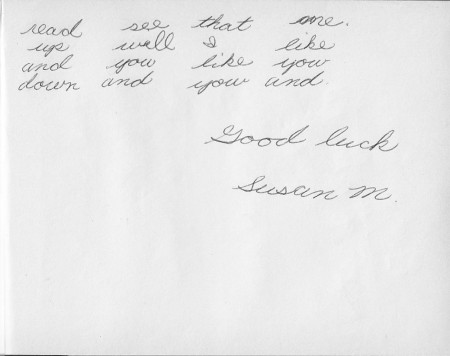 read see that me.
up will I like
and you like you
down and you and.
Good luck
Susan M.